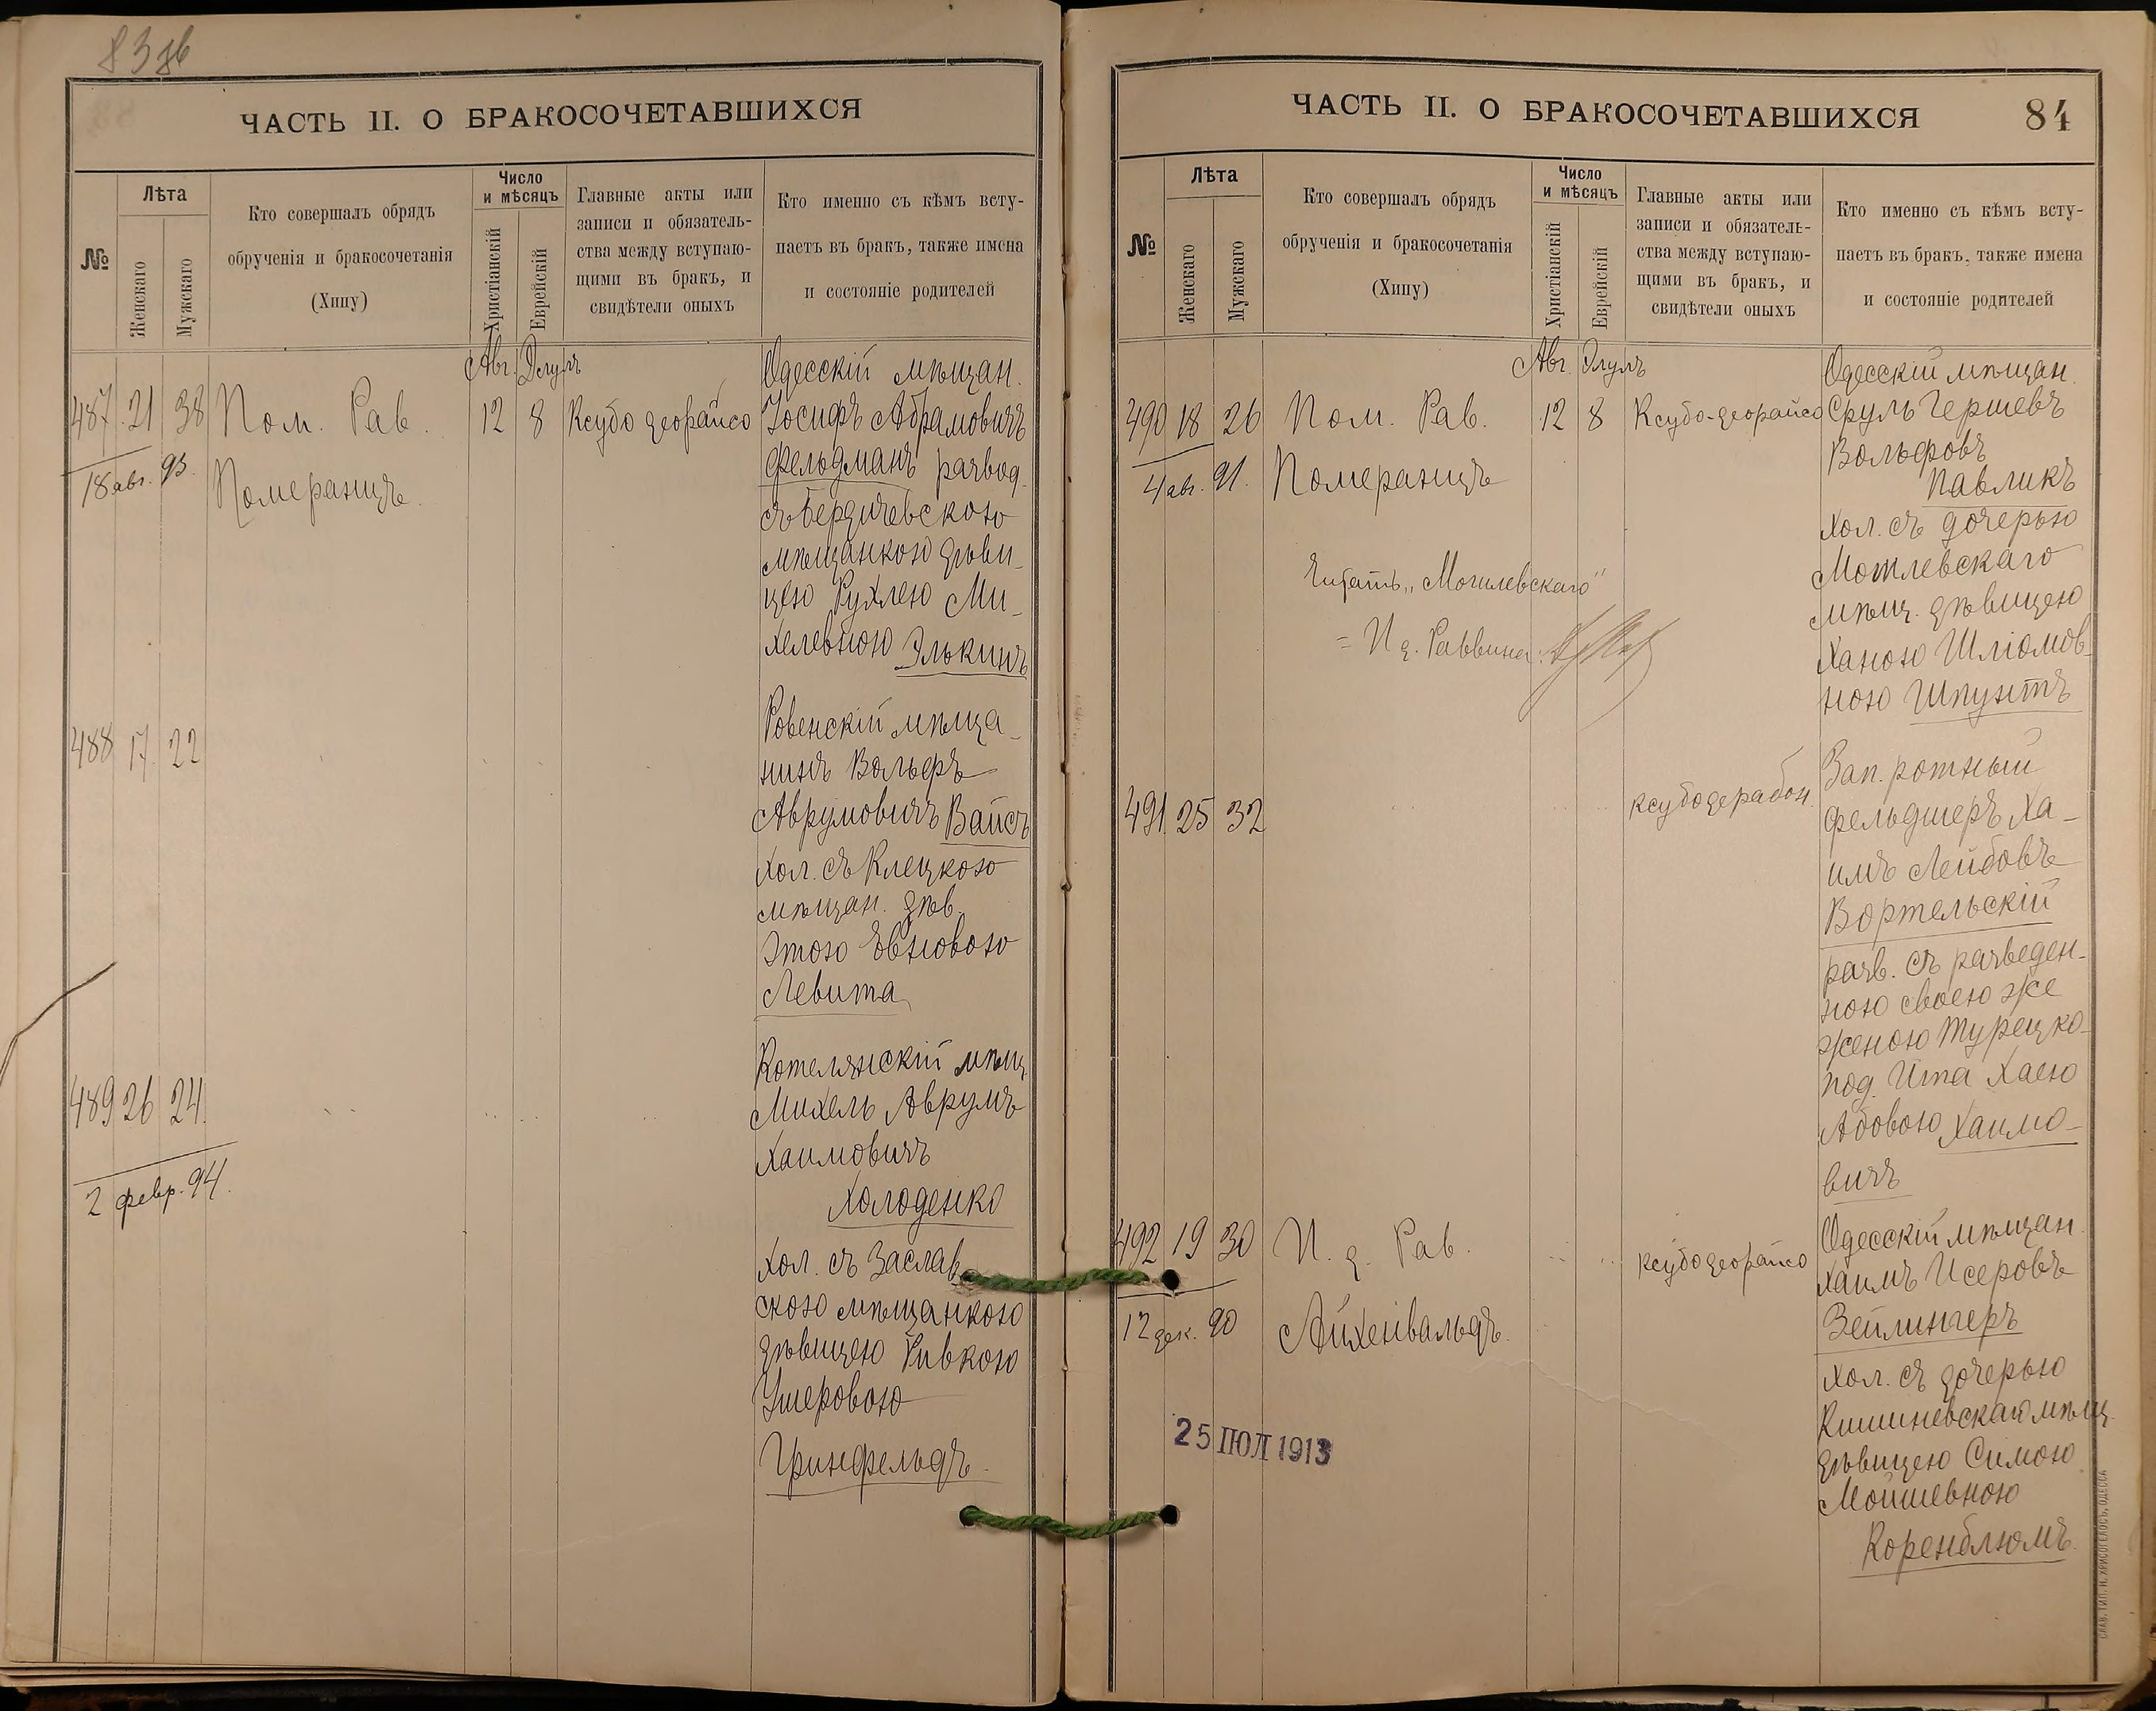 83 об
ЧАСТЬ II. О БРАКОСОЧЕТАВШИХСЯ
№
Лѣта
Женскаго
Мужскаго
Кто совершалъ обрядъ
обрученія и бракосочетанія
(Хипу)
Число
и мѣсяцъ
Христіанскій
Еврейскій
Главные акты или
записи и обязатель-
ства между вступаю-
щими въ бракъ, и
свидѣтели оныхъ
Кто именно съ кѣмъ всту-
паетъ въ бракъ, также имена
и состояніе родителей
Авг. Элулъ
487 21 38 Пом. Рав. 12 8 Ксубо деорайсо
18 авг. 93. Померанцъ.
Одесскій мѣщан.
Іосифъ Абрамовичъ
Фельдманъ развод.
съ Бердичевскою
мѣщанкою дѣви-
цею Рухлею Ми-
хелевною Элькинъ
488 17 22
Ровенскій мѣща-
нинъ Вольфъ
Аврумовичъ Вайсъ
хол. съ Клецкою
мѣщан. дѣв.
Этою Евновою
Левита
489 26 24.
2 февр. 94.
Котелянскій мѣщ.
Михель Аврумъ
Хаимовичъ
Холоденко
хол. съ Заслав
скою мѣщанкою
дѣвицею Ривкою
Ушеровою
Гринфельдъ.
ЧАСТЬ II. О БРАКОСОЧЕТАВШИХСЯ 84
№
Лѣта
Женскаго
Мужскаго
Кто совершалъ обрядъ
обрученія и бракосочетанія
(Хипу)
Число
и мѣсяцъ
Христіанскій
Еврейскій
Главные акты или
записи и обязатель-
ства между вступаю-
щими въ бракъ, и
свидѣтели оныхъ
Кто именно съ кѣмъ всту-
паетъ въ бракъ, также имена
и состояніе родителей
Авг. Элулъ
490 18 26 Пом. Рав. 12 8 Ксубо-деорайсо
4 авг. 91. Померанцъ
Читать „Могилевскаго"
= И д. Раввина:
Одесскій мѣщан.
Сруль Гершевъ
Вольфовъ
Павликъ
хол. съ дочерью
Мотлевскаго
мѣщ. дѣвицею
Ханою Шліомов-
ною Шпунтъ
491 25 32 ксубодерабон.
Зап. ротный
фельдшеръ Ха-
имъ Лейбовъ
Вортельскій
разв. съ разведен-
ною своею же
женою Турецко-
под. Ита Хаею
Абовою Хаимо-
вичъ
492 19 30 И. д. Рав. ксубодеорайсо
12 дек. 90 Айхенвальдъ.
Одесскій мѣщан.
Хаимъ Исеровъ
Зейлингеръ
хол. съ дочерью
Кишиневскаго мѣщ.
дѣвицею Симою
Мошкевною
Коренблюмъ.
25 ІЮЛ 1913
СЛАВ. ТИП. Н. ХРИСОГЕЛОСЪ, ОДЕССА